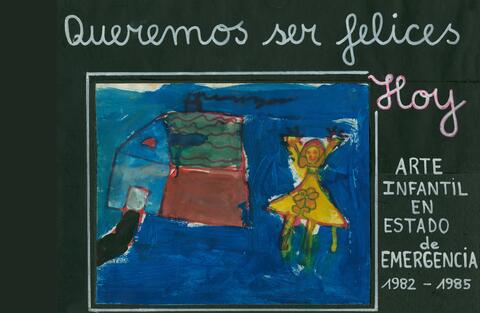 Queremos ser felices
Hoy
ARTE
INFANTIL
EN
ESTADO
de
EMERGENCIA
1982 - 1985